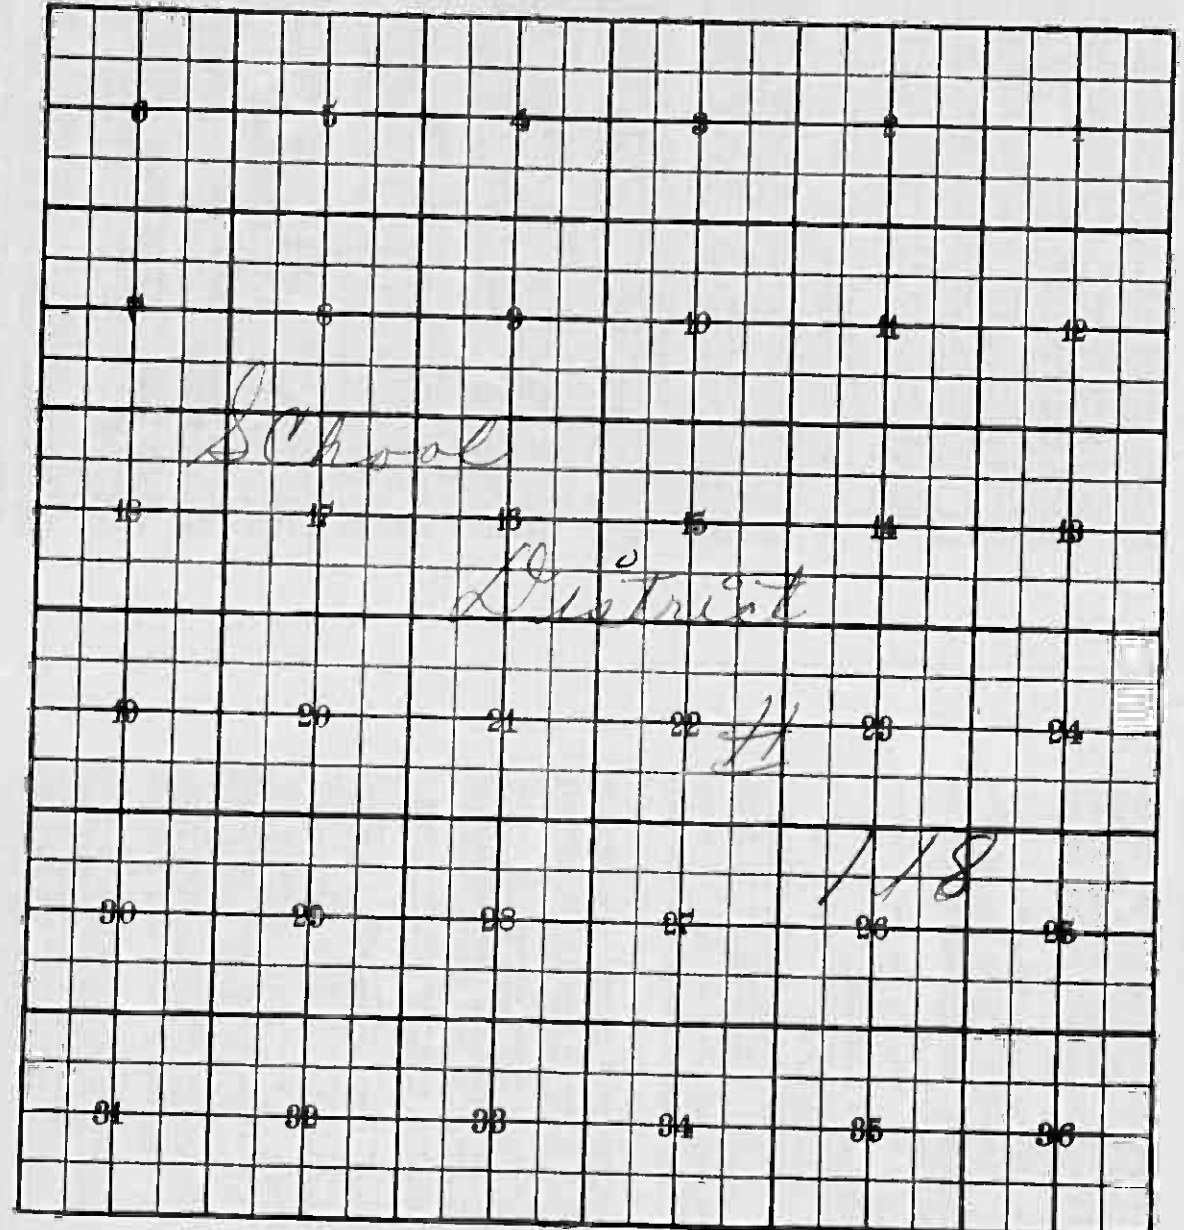 6 5 4 3 2 1
7 8 9 10 11 12
School
18 17 16 15 14 13
District
19 20 21 22 23 24
#
118
30 29 28 27 26 25
31 32 33 34 35 36